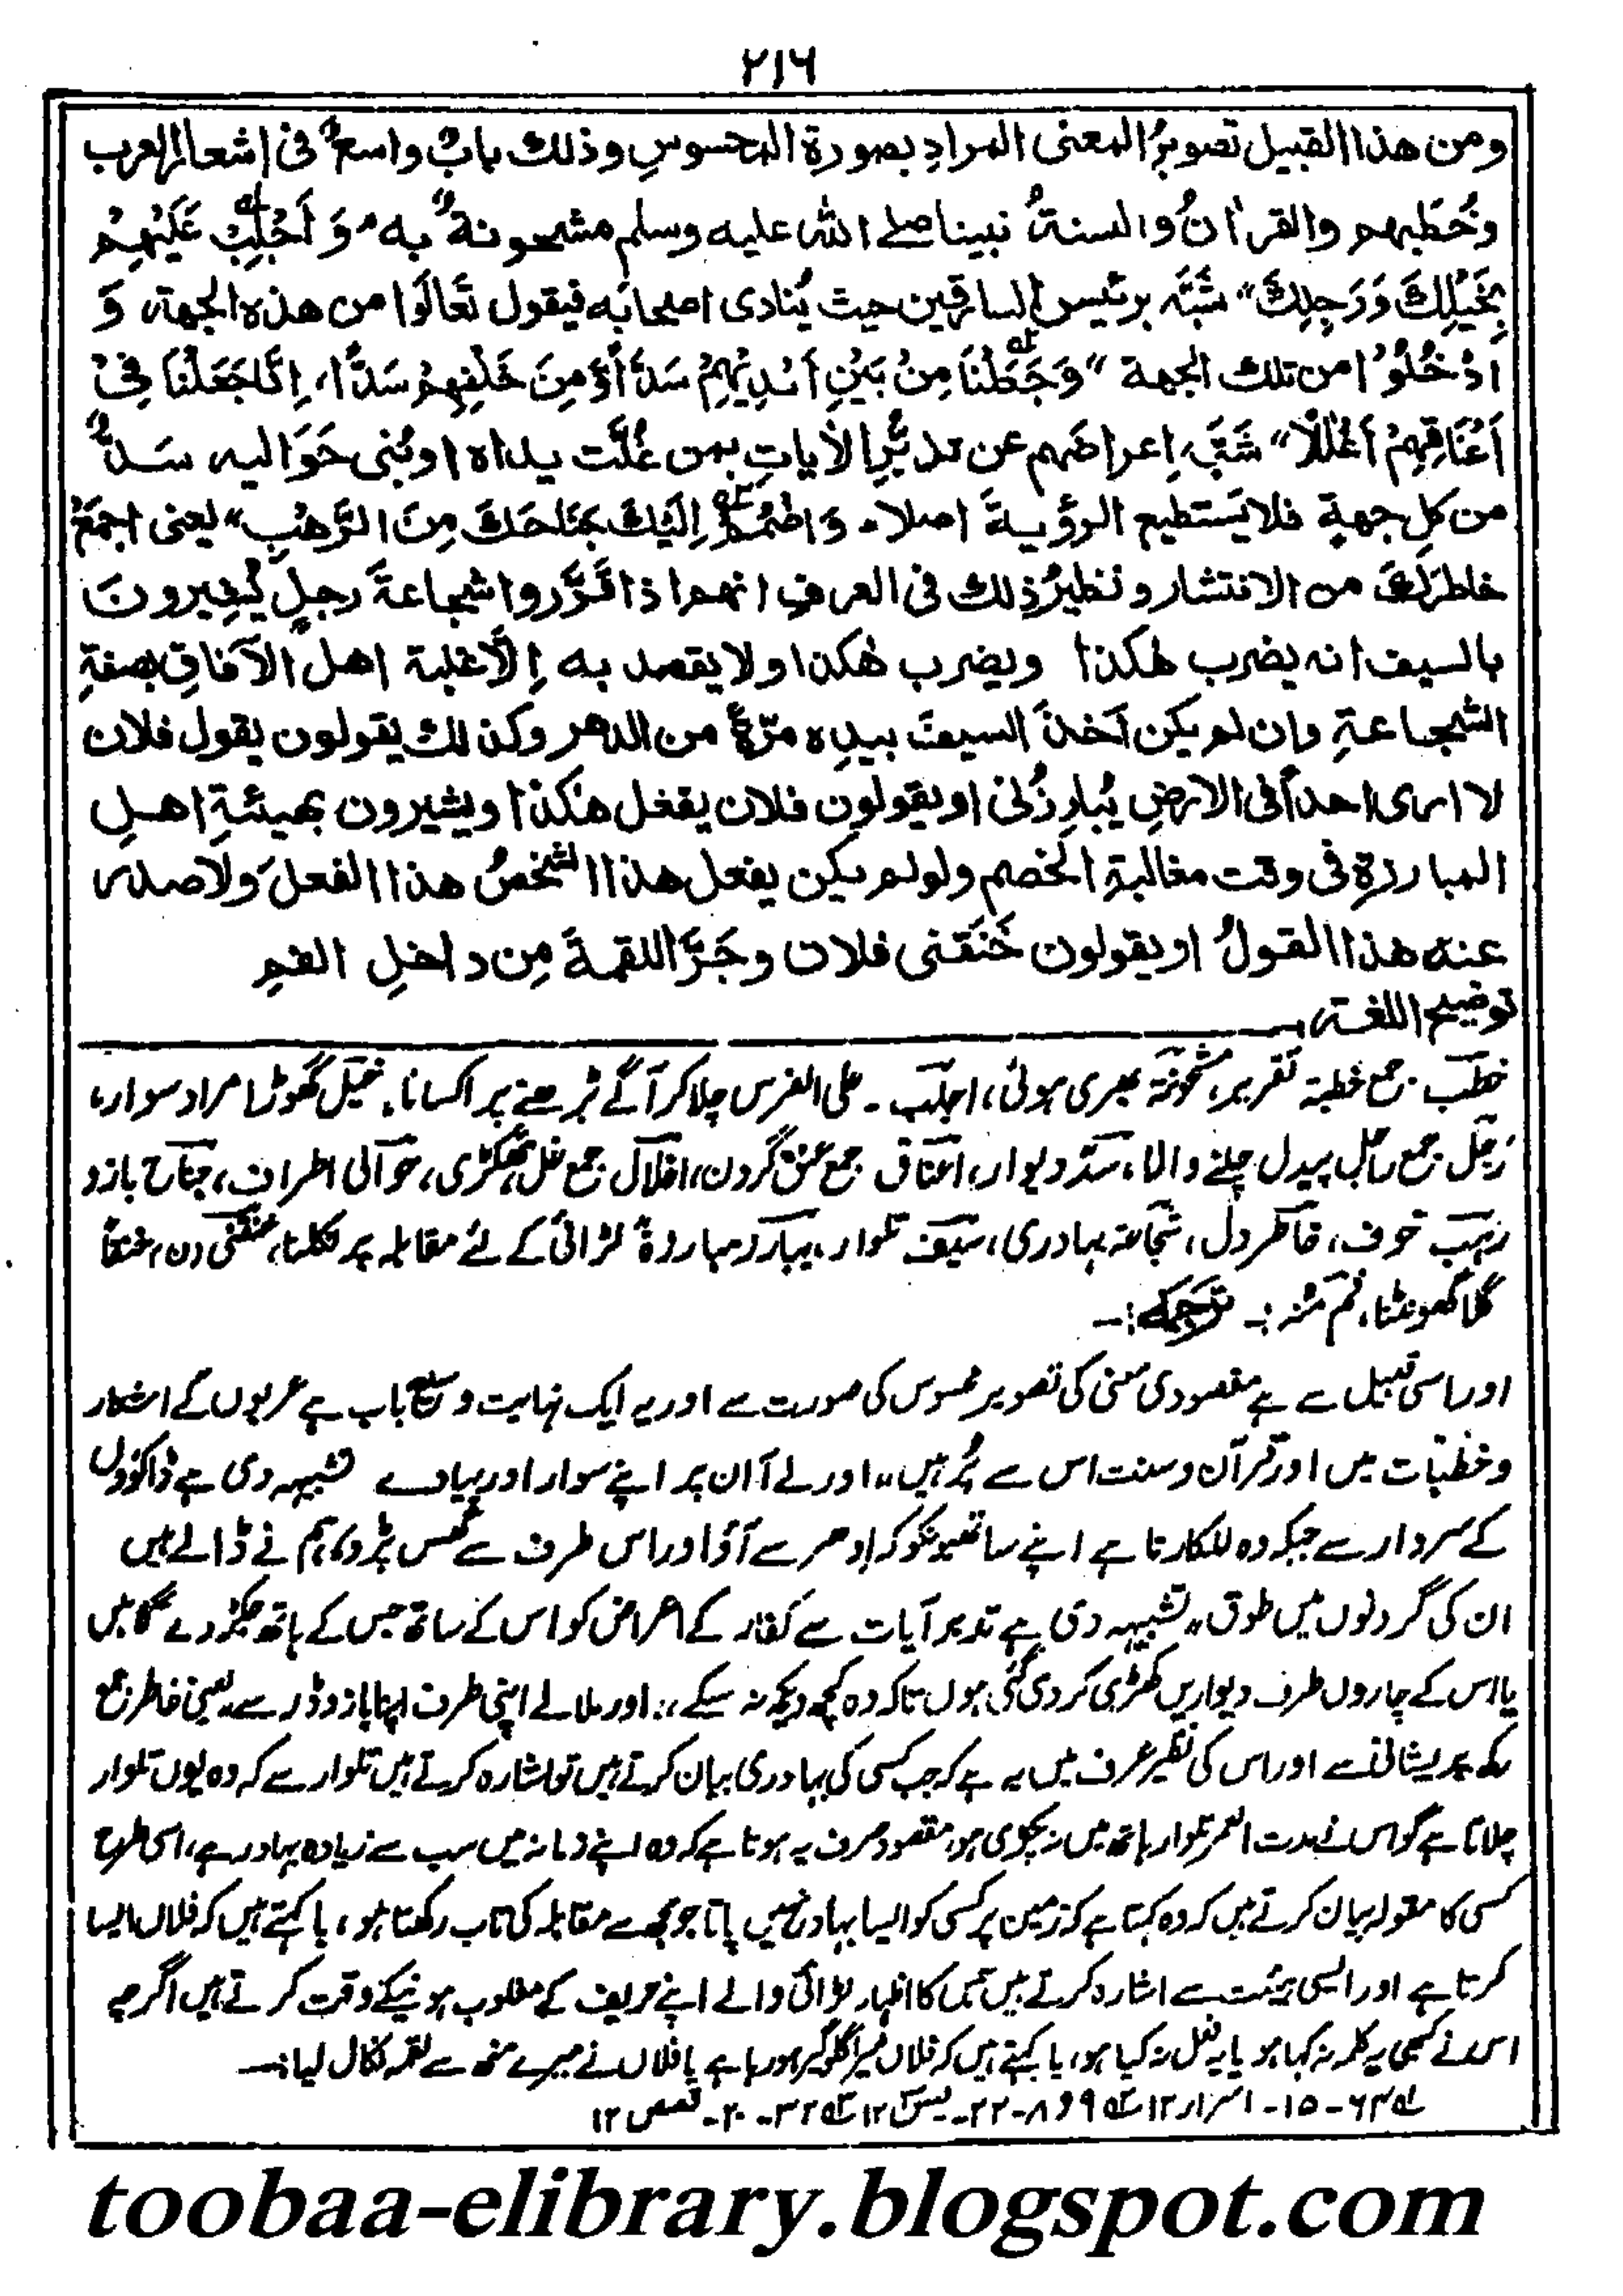 ۲۱۶
ومن هذا القبيل تصويرُ المعنى المرادِ بصورة المحسوسِ وذلك بابٌ واسعٌ فى اشعار العرب
وخُطَبِهم والقراٰنُ والسنةُ نبينا صلے الله عليه وسلم مشحونةٌ به "وَ اَجْلِبْ عَلَيْهِمْ
بِخَيْلِكَ وَرَجِلِكَ" شَبَّہ برئيس السارقين حيث يُنادى اصحابَه فيقول تَعَالَوْا من هذه الجهة، وَ
ادْخُلُوْا من تلك الجهة "وَجَعَلْنَا مِنْ بَيْنِ اَيْدِيْهِمْ سَدًّا وَّمِنَ خَلْفِهِمْ سَدًّا، اِنَّا جَعَلْنَا فِىْ
اَعْنَاقِهِمْ اَغْلٰلًا" شَبَّہ اِعراضَهم عن تدبُّرِ الاٰياتِ بمن غُلَّت يداه او بُنى حَوَاليه سَدٌّ
من كلِ جهةٍ فلا يَستطيع الرؤيةَ اصلا، وَاضْمُمْ اِلَيْكَ جَنَاحَكَ مِنَ الرَّهْبِ" يعنى اجمَعْ
خاطرَك من الانتشار ونظيرُ ذلك فى العرفِ انهم اذا قَرَّروا شجاعةَ رجلٍ يُشِيرونَ
بالسيف انه يضرب هٰكذا ويضرب هٰكذا ولا يقصد به اِلّا غلبة اهل الآفاقِ بصفةِ
الشجاعةِ وان لم يكن اَخذَ السيفَ بيدِه مرّةً من الدهر وكذلك يقولون يقول فلان
لا ارى احداً فى الارضِ يُبارِزُنى او يقولون فلان يفعل هٰكذا ويشيرون بهيئةِ اهلِ
المبارزةِ فى وقت مغالبةِ الخصم ولو لم يكن يفعل هذا الشخصُ هذا الفعلَ ولا صدر
عنه هذا القولُ او يقولون خَنَقَنى فلان وجَرَّ اللقمةَ مِن داخلِ الفمِ
توضيح اللغة،
خطب جمع خطبۃ تقریر، مشحونۃ بھری ہوئی، اجلب ۔ علی الفرس چلا کر آگے بڑھنے پر اکسانا۔ خیل گھوڑا مراد سوار،
رجل جمع راجل پیدل چلنے والا، سد دیوار، اعناق جمع عنق گردن، اغلال جمع غل ہتھکڑی، حوالی اطراف، جناح بازو
رہب خوف، خاطر دل، شجاعۃ بہادری، سیف تلوار، یبارز مبارزۃ لڑائی کے لئے مقابلہ پر نکلنا، خنقنی (ن) خنقاً
گلا گھونٹنا، فم منہ :۔ ترجمہ :۔
اور اسی قبیل سے ہے مقصودی معنی کی تصویر محسوس کی صورت سے اور یہ ایک نہایت وسیع باب ہے عربوں کے اشعار
وخطبات میں اور قرآن وسنت اس سے پُر ہیں، "اور لے آ ان پر اپنے سوار اور پیادے تشبیہ دی ہے ڈاکوؤں
کے سردار سے جبکہ وہ للکارتا ہے اپنے ساتھیونکو کہ ادھر سے آؤ اور اس طرف سے گھس پڑو، ہم نے ڈالے ہیں
ان کی گردنوں میں طوق" تشبیہ دی ہے تدبر آیات سے کفار کے اعراض کو اس کے ساتھ جس کے ہاتھ جکڑ دے گئے ہیں
یا اس کے چاروں طرف دیواریں کھڑی کر دی گئی ہوں تاکہ وہ کچھ دیکھ نہ سکے،" اور ملا لے اپنی طرف اپنا بازو ڈر سے" یعنی خاطر جمع
رکھ پریشانی سے اور اس کی نظیر عرف میں یہ ہے کہ جب کسی کی بہادری بیان کرتے ہیں تو اشارہ کرتے ہیں تلوار سے کہ وہ یوں تلوار
چلاتا ہے گو اس نے مدت العمر تلوار ہاتھ میں نہ پکڑی ہو، مقصود صرف یہ ہوتا ہے کہ وہ اپنے زمانہ میں سب سے زیادہ بہادر ہے، اسی طرح
کسی کا مقولہ بیان کرتے ہیں کہ وہ کہتا ہے کہ زمین پر کسی کو ایسا بہادر نہیں پاتا جو مجھ سے مقابلہ کی تاب رکھتا ہو، یا کہتے ہیں کہ فلاں ایسا
کرتا ہے اور ایسی ہیئت سے اشارہ کرتے ہیں جس کا اظہار لڑائی والے اپنے حریف کے مغلوب ہونیکے وقت کرتے ہیں اگرچہ
اس نے کبھی یہ کلمہ نہ کہا ہو یا یہ فعل نہ کیا ہو، یا کہتے ہیں کہ فلاں میرا گلوگیر ہو رہا ہے یا فلاں نے میرے منھ سے لقمہ نکال لیا :۔
۶۴ - ۱۵ - اسرار ۱۲ ۹ و ۸ - ۲۲ - یس ۱۲ ۳۲ - ۲۰ - قصص ۱۲
toobaa-elibrary.blogspot.com